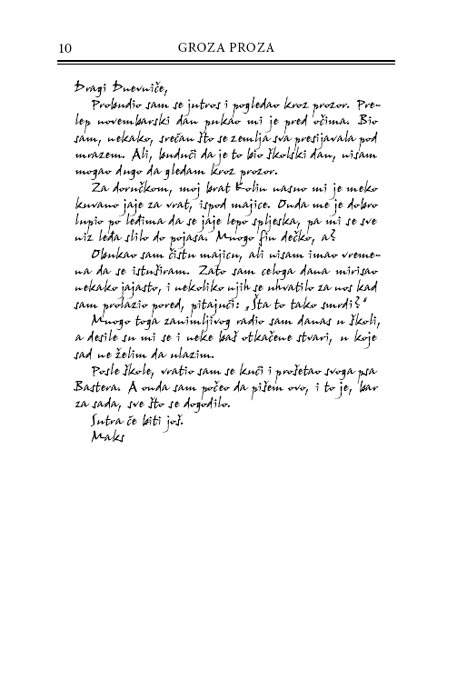 10
GROZA PROZA
Dragi Dnevniče,
Probudio sam se jutros i pogledao kroz prozor. Pre-
lep novembarski dan pukao mi je pred očima. Bio
sam, nekako, srećan što se zemlja sva presijavala pod
mrazem. Ali, budući da je to bio školski dan, nisam
mogao dugo da gledam kroz prozor.
Za doručkom, moj brat Kolin nasuo mi je meko
kuvano jaje za vrat, ispod majice. Onda me je dobro
lupio po leđima da se jaje lepo spljeska, pa mi se sve
niz leđa slilo do pojasa. Mnogo fin dečko, a?
Obukao sam čistu majicu, ali nisam imao vreme-
na da se istuširam. Zato sam celoga dana mirisao
nekako jajasto, i nekoliko njih se uhvatilo za nos kad
sam prolazio pored, pitajući: „Šta to tako smrdi?“
Mnogo toga zanimljivog radio sam danas u školi,
a desile su mi se i neke baš otkačene stvari, u koje
sad ne želim da ulazim.
Posle škole, vratio sam se kući i prošetao svoga psa
Bastera. A onda sam počeo da pišem ovo, i to je, bar
za sada, sve što se dogodilo.
Sutra će biti još.
Maks